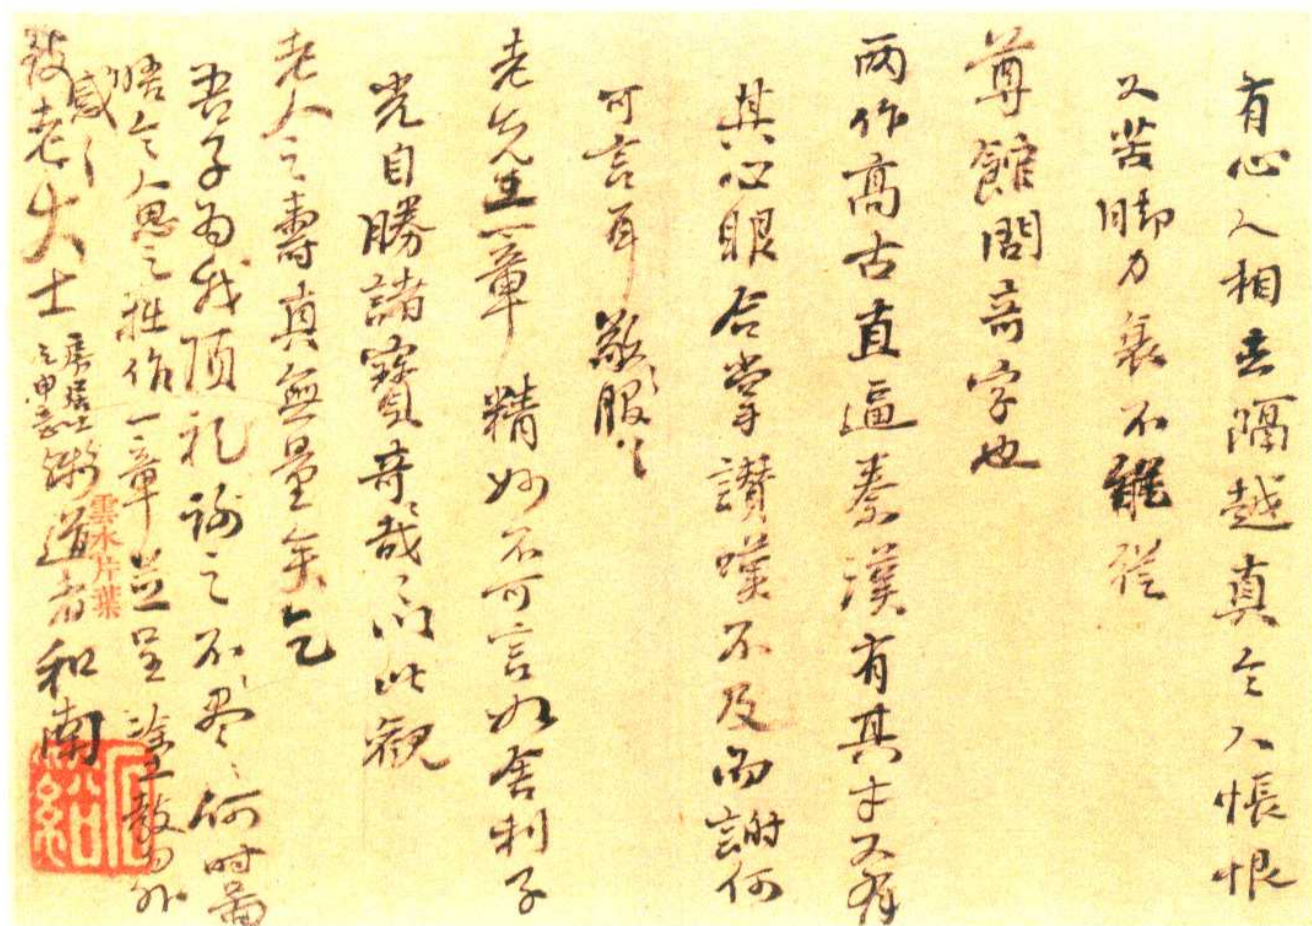 有心人相去隔越真令人悵恨
又苦脚力衰不能從
尊館問奇字也
兩作高古直逼秦漢有其才又有
其心眼合掌讚嘆不及而謝何
可言耶敬服敬服
老先生一章精妙不可言如舍利子
光自勝諸寶奇哉奇哉以此觀
老人之壽真無量矣乞
吾子為我頂礼謝之不盡不盡何時面
晤令人思之拙作一章並呈塗教勿外
感感
致老大士
道者和南
雲水片葉